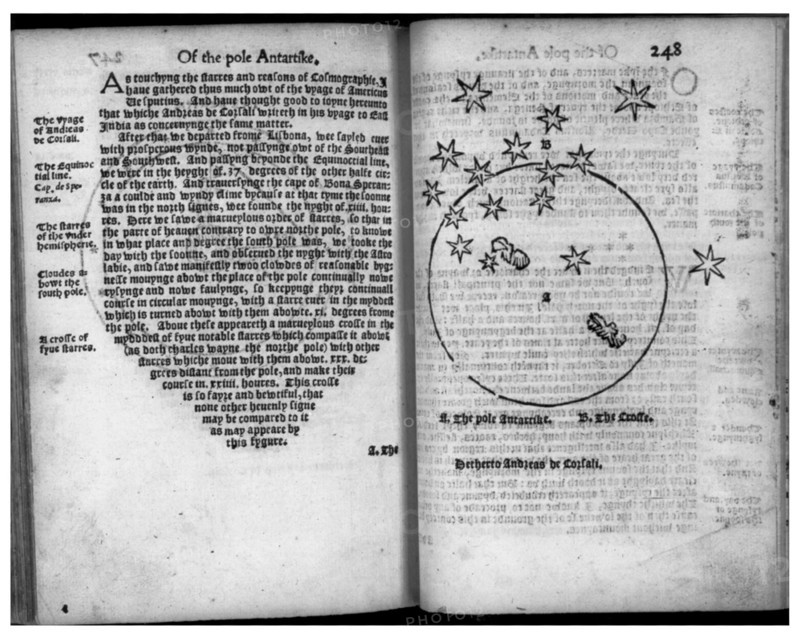 Of the pole Antartike.
As touchyng the starres and reasons of Cosmographie, I
haue gathered thus much owt of the vyage of Americus
Vesputius. And haue thought good to ioyne hereunto
that whiche Andreas de Corsali wrîteth in his vyage to East
India as concernynge the same matter.
After that we departed frome Lisbona, wee sayled euer
with prosperous wynde, not passynge owt of the Southeast
and Southwest. And passyng beyonde the Equinoctial line,
we were in the heyght of .37. degrees of the other halfe cir-
cle of the earth. And trauersynge the cape of Bona Speran-
za a coulde and wyndy clime bycause at that tyme the soonne
was in the north signes, wee founde the nyght of .xiiii. hou-
res. Here we sawe a marueylous order of starres, so that in
the parte of heauen contrary to owre northe pole, to knowe
in what place and degree the south pole was, we tooke the
day with the soonne, and obserued the nyght with the Astro
labie, and sawe manifestly twoo clowdes of reasonable byg-
nesse mouynge abowt the place of the pole continually nowe
rysynge and nowe faulynge, so keepynge theyr continuall
course in circular mouynge, with a starre euer in the myddest
which is turned abowt with them abowte .xi. degrees frome
the pole. Aboue these appeareth a marueylous crosse in the
myddest of fyue notable starres which compasse it abowt
(as doth charles wayne the northe pole) with other
starres whiche moue with them abowt .xxx. de-
grees distant from the pole, and make their
course in .xxiiii. houres. This crosse
is so fayre and bewtiful, that
none other heuenly signe
may be compared to it
as may appeare by
this fygure.
A. The
The vyage
of Andreas
de Corsali.
The Equinoc
tial line.
Cap. de Spe-
ranza.
The starres
of the vnder
hemispherie.
Cloudes a-
bowt the
south pole.
A crosse of
fyue starres.
4
248
B
A
A. The pole Antartike. B. The Crosse.
Hetherto Andreas de Corsali.